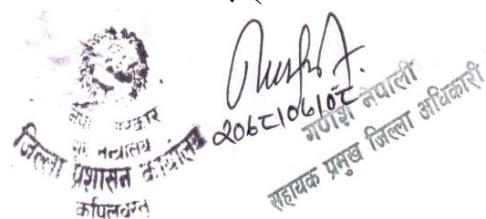 नेपाल सरकार
गृह मन्त्रालय
जिल्ला प्रशासन कार्यालय
कपिलवस्तु
२०६८/०६/०८
गणेश नेपाली
सहायक प्रमुख जिल्ला अधिकारी